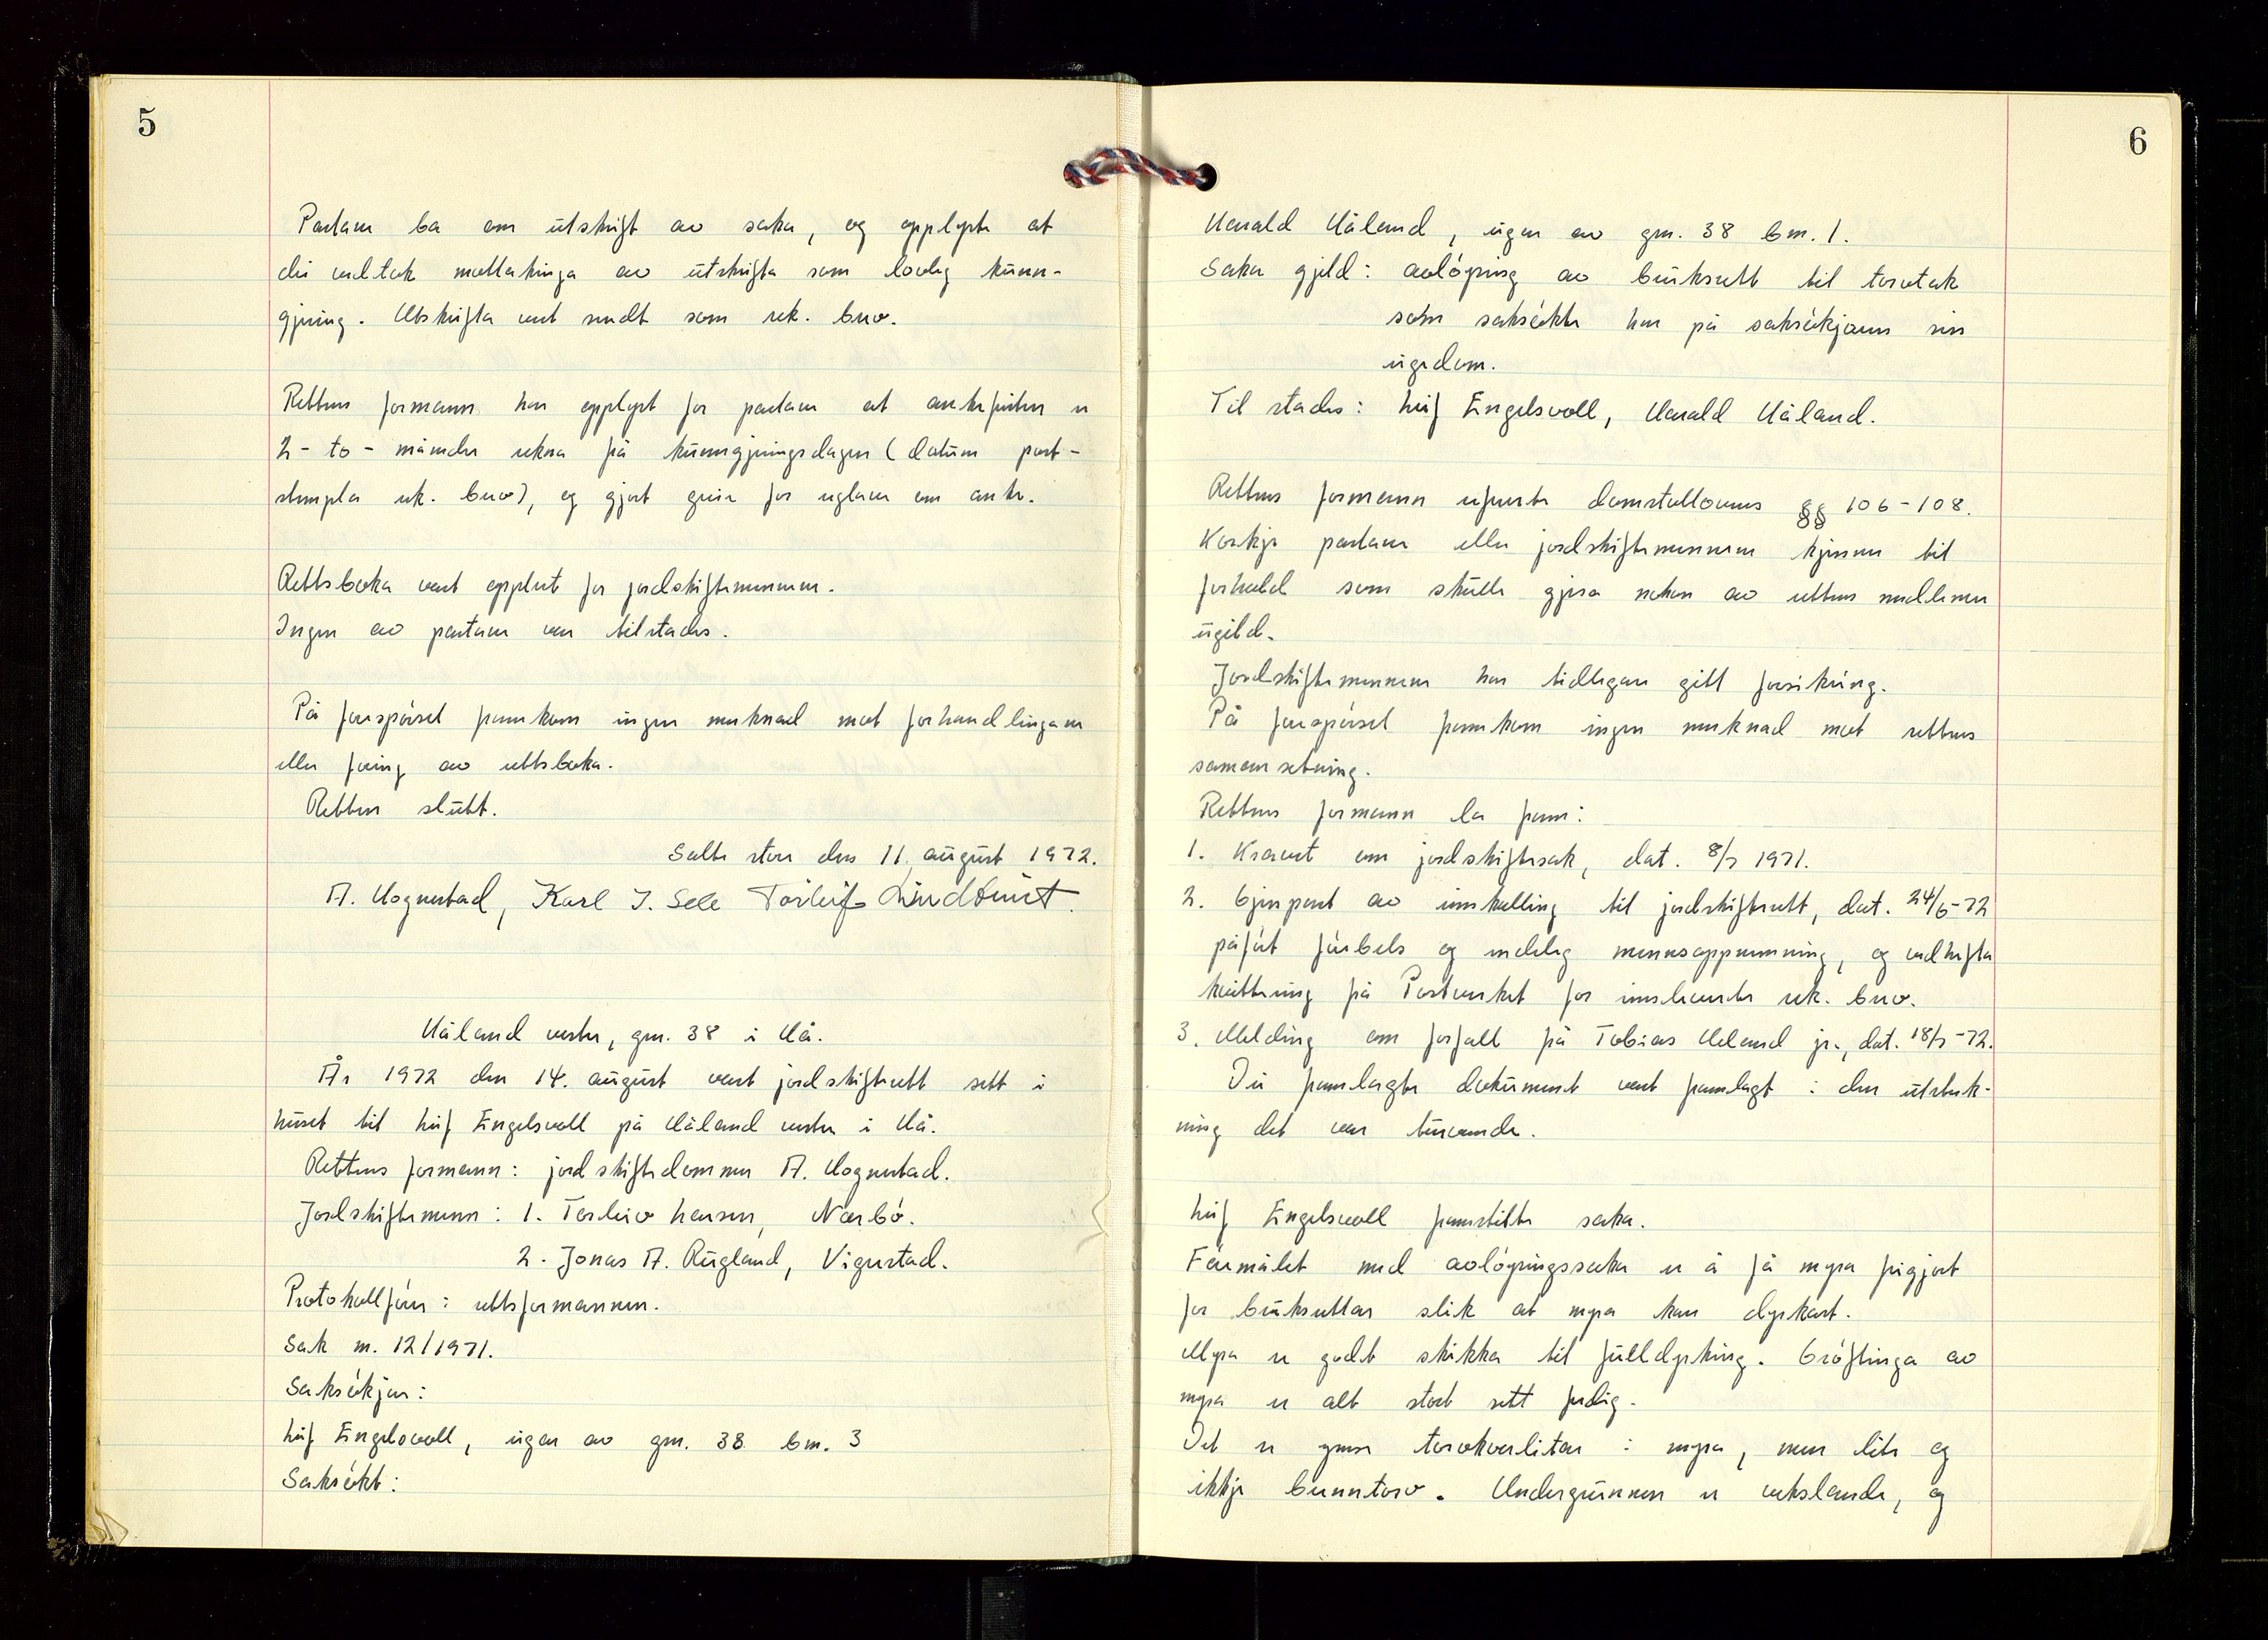 5
Partane ba om utskrift av saka, og opplyste at
dei vedtok mottakinga av utskrifta som lovleg kunn-
gjering. Utskrifta vert sendt som rek. brev.
Rettens formann har opplyst for partane at ankefristen er
2 - to - månader rekna frå kunngjeringsdagen (datum post-
stempla rek. brev), og gjort greie for reglane om anke.
Rettsboka vart opplest for jordskiftemennene.
Ingen av partane var tilstades.
På førespørsel framkom ingen merknad mot forhandlingane
eller føring av rettsboka.
Retten slutt.
Salte stoa den 11. august 1972.
A. Hognestad, Karl J. Sele Torleif Lindtveit.
Håland vestre, gnr. 38 i Hå.
År 1972 den 14. august vart jordskifterett sett i
huset til Leif Engelsvoll på Håland vestre i Hå.
Rettens formann: jordskiftedommer A. Hognestad.
Jordskiftemenn: 1. Torleiv Hansen, Nærbø.
2. Jonas A. Rugland, Vigrestad.
Protokollførar: rettsformannen.
Sak nr. 12/1971.
Saksøkjar:
Leif Engelsvoll, eigar av gnr. 38 bnr. 3
Saksøkt:
6
Harald Håland, eigar av gnr. 38 bnr. 1.
Saka gjeld: avløysing av bruksrett til torvtak
som saksøkte har på saksøkjarens sin
eigedom.
Til stades: Leif Engelsvoll, Harald Håland.
Rettens formann refererte domstollovens §§ 106-108.
Korkje partane eller jordskiftemennene kjenner til
forhold som skulle gjera nokon av rettens medlemer
ugild.
Jordskiftemennene har tidlegare gitt forsikring.
På førespørsel framkom ingen merknad mot rettens
samansetning.
Rettens formann la fram:
1. Kravet om jordskiftesak, dat. 8/7 1971.
2. Gjenpart av innkalling til jordskifterett, dat. 24/6-72
påført forbels og endeleg mennsoppnemning, og vedhefta
kvittering frå Postverket for innleverte rek. brev.
3. Melding om forfall frå Tobias Heland jr., dat. 18/7-72.
Dei framlagte dokument vart framlagt i den utstrek-
ning det var turvande.
Leif Engelsvoll framstilte saka.
Føremålet med avløysingssaka er å få myra frigjort
for bruksrettar slik at myra kan dyrkast.
Myra er godt skikka til fulldyrking. Grøftinga av
myra er alt stort sett ferdig.
Det er ymse torvkvalitar i myra, men lite og
ikkje brenntorv. Undergrunnen er vekslande, og